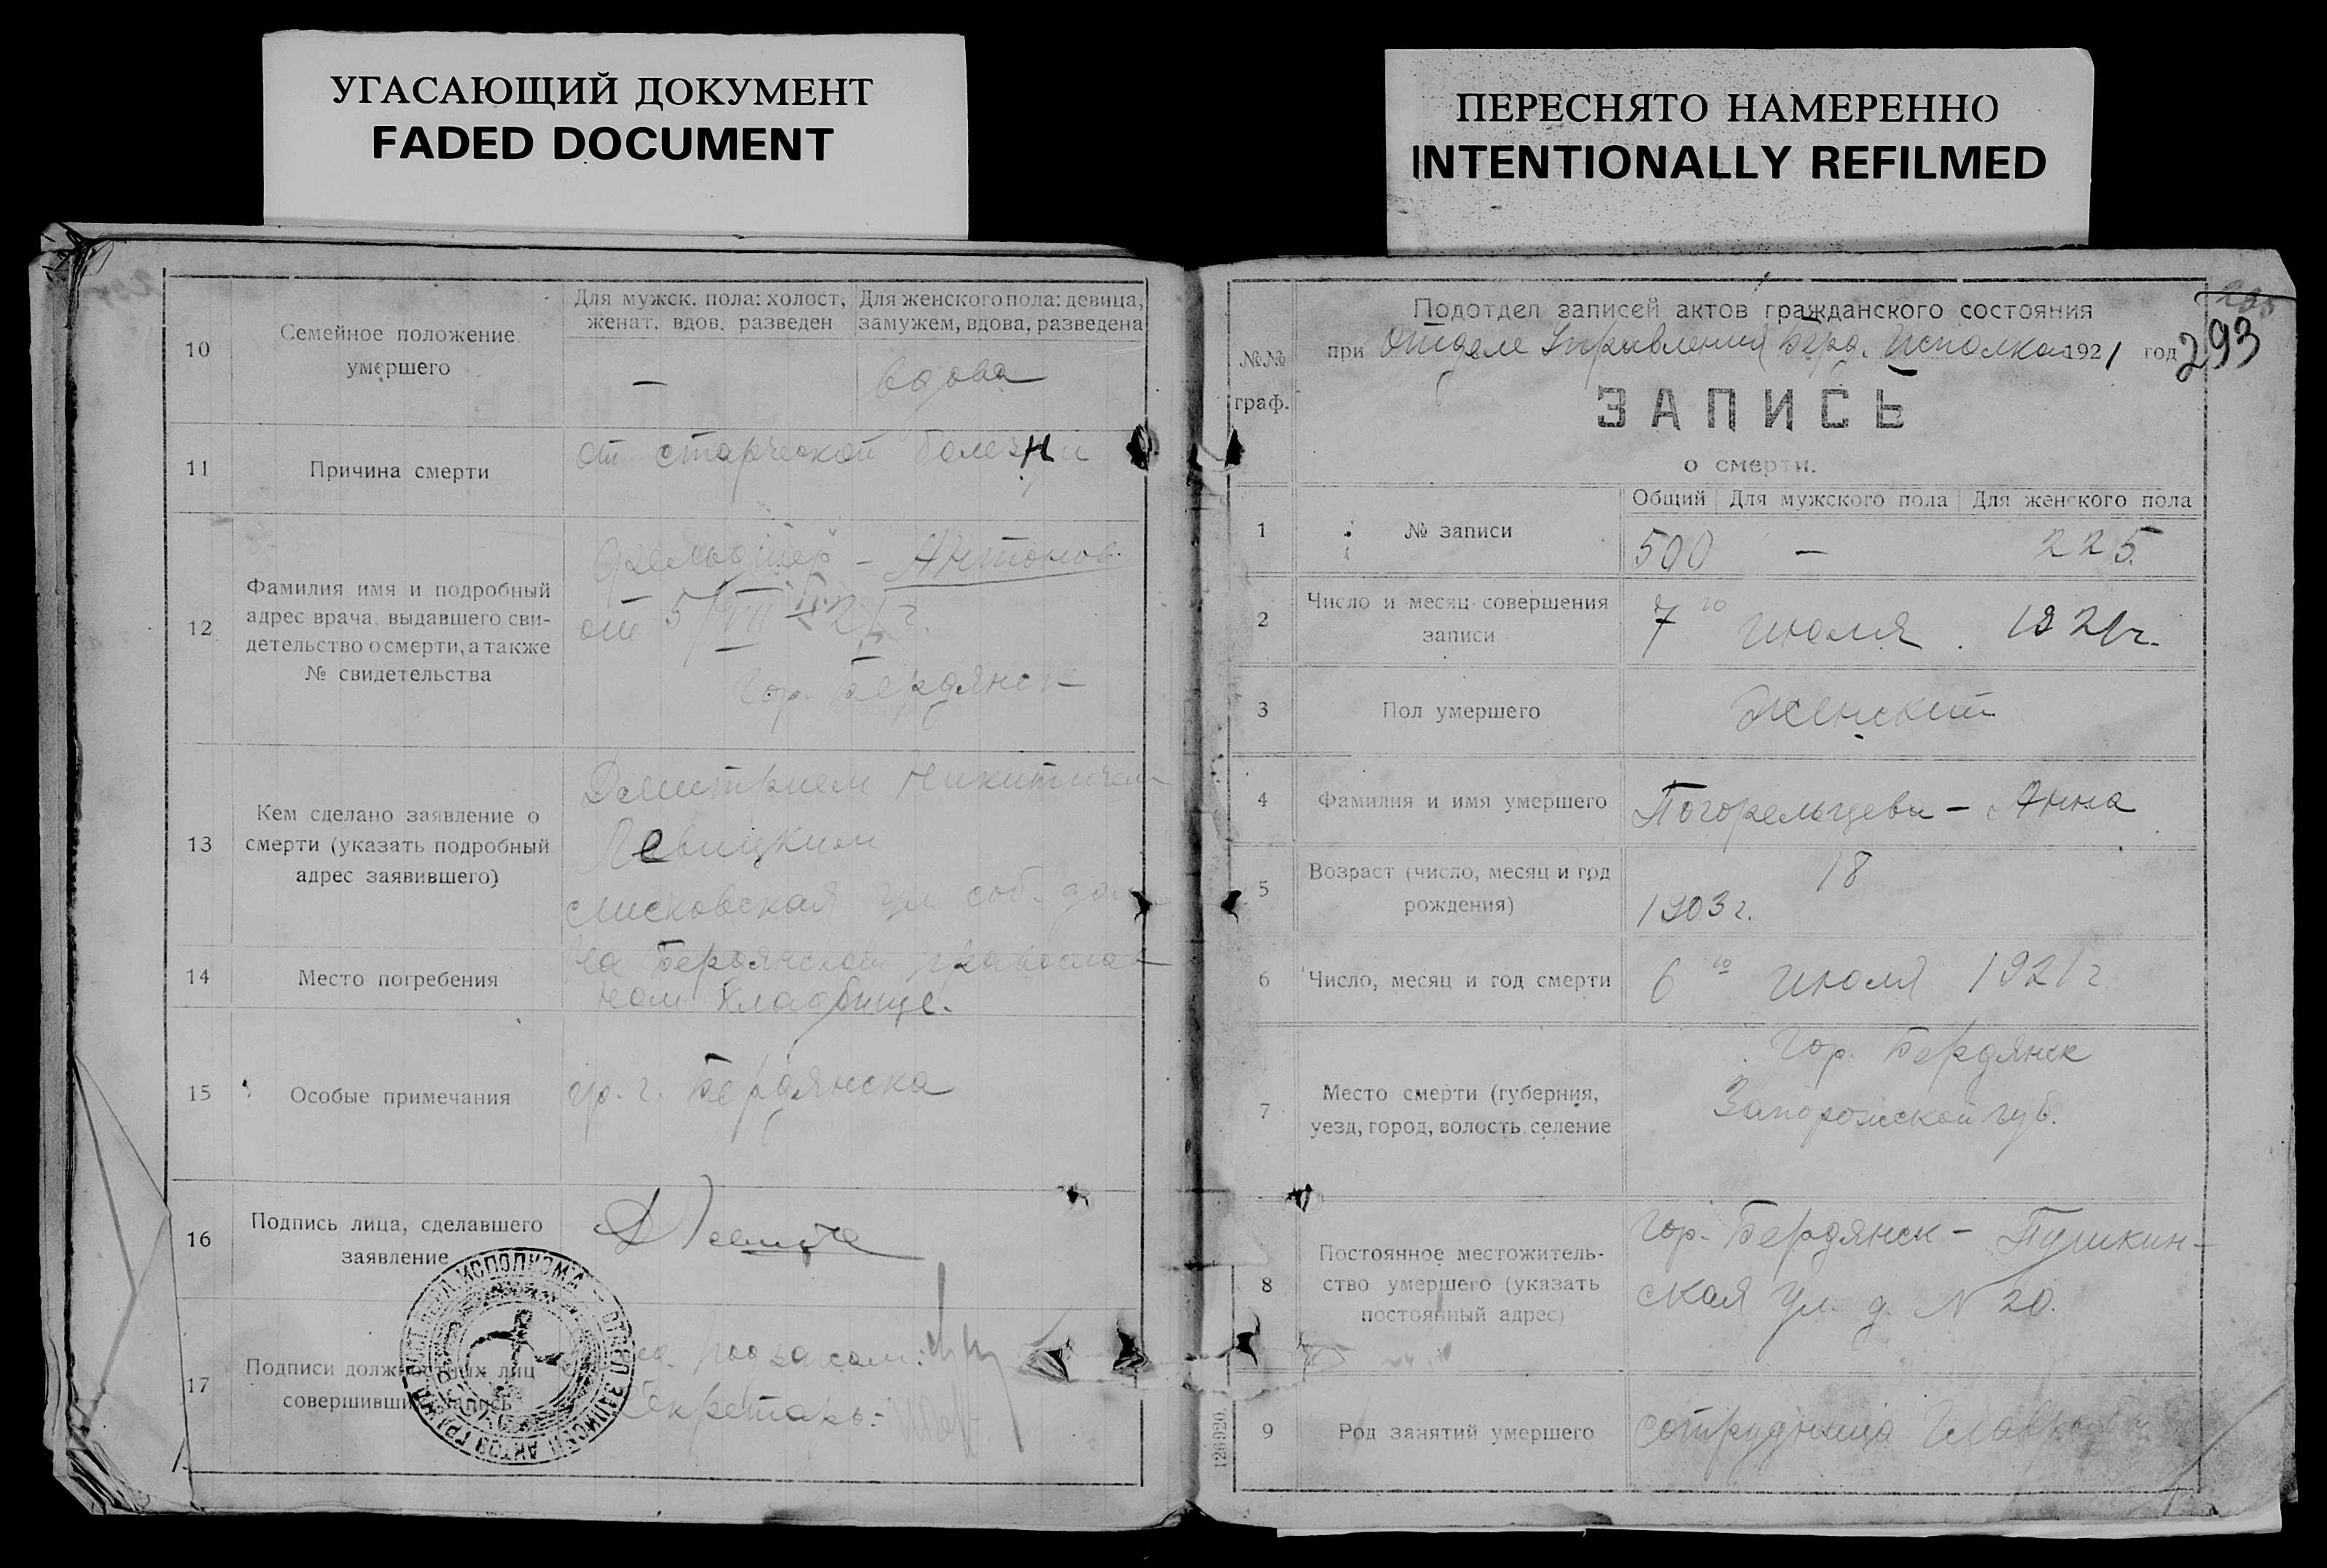 УГАСАЮЩИЙ ДОКУМЕНТ
FADED DOCUMENT
ПЕРЕСНЯТО НАМЕРЕННО
INTENTIONALLY REFILMED
10
Семейное положение
умершего
Для мужск. пола: холост,
женат. вдов. разведен
—
Для женского пола: девица,
замужем, вдова, разведена
вдова
11
Причина смерти
от старческой болезни
12
Фамилия имя и подробный
адрес врача, выдавшего сви-
детельство о смерти, а также
№ свидетельства
Фельдшер - Антонов
от 5/VII 21 г.
гор. Бердянск
13
Кем сделано заявление о
смерти (указать подробный
адрес заявившего)
Демитрием Никитичем
Левицким
ул. соб. дом
14
Место погребения
на Бердянском православ
ном кладбище.
15
Особые примечания
гр. г. Бердянска
16
Подпись лица, сделавшего
заявление
17
Подписи должностных лиц
совершивших запись
Секретарь:
№№
граф.
Подотдел записей актов гражданского состояния
при Отделе Управления Берд. Исполкома 1921 год
293
ЗАПИСЬ
о смерти.
1
№ записи
Общий
Для мужского пола
Для женского пола
500
—
225
2
Число и месяц совершения
записи
7го июля 1921 г.
3
Пол умершего
Женский
4
Фамилия и имя умершего
Погорельцева - Анна
5
Возраст (число, месяц и год
рождения)
18
1903 г.
6
Число, месяц и год смерти
6го июля 1921 г
7
Место смерти (губерния,
уезд, город, волость селение
Гор. Бердянск
Запорожской губ.
8
Постоянное местожитель-
ство умершего (указать
постоянный адрес)
гор. Бердянск - Пушкин-
ская ул. д. N 20.
9
Род занятий умершего
сотрудница
126920.